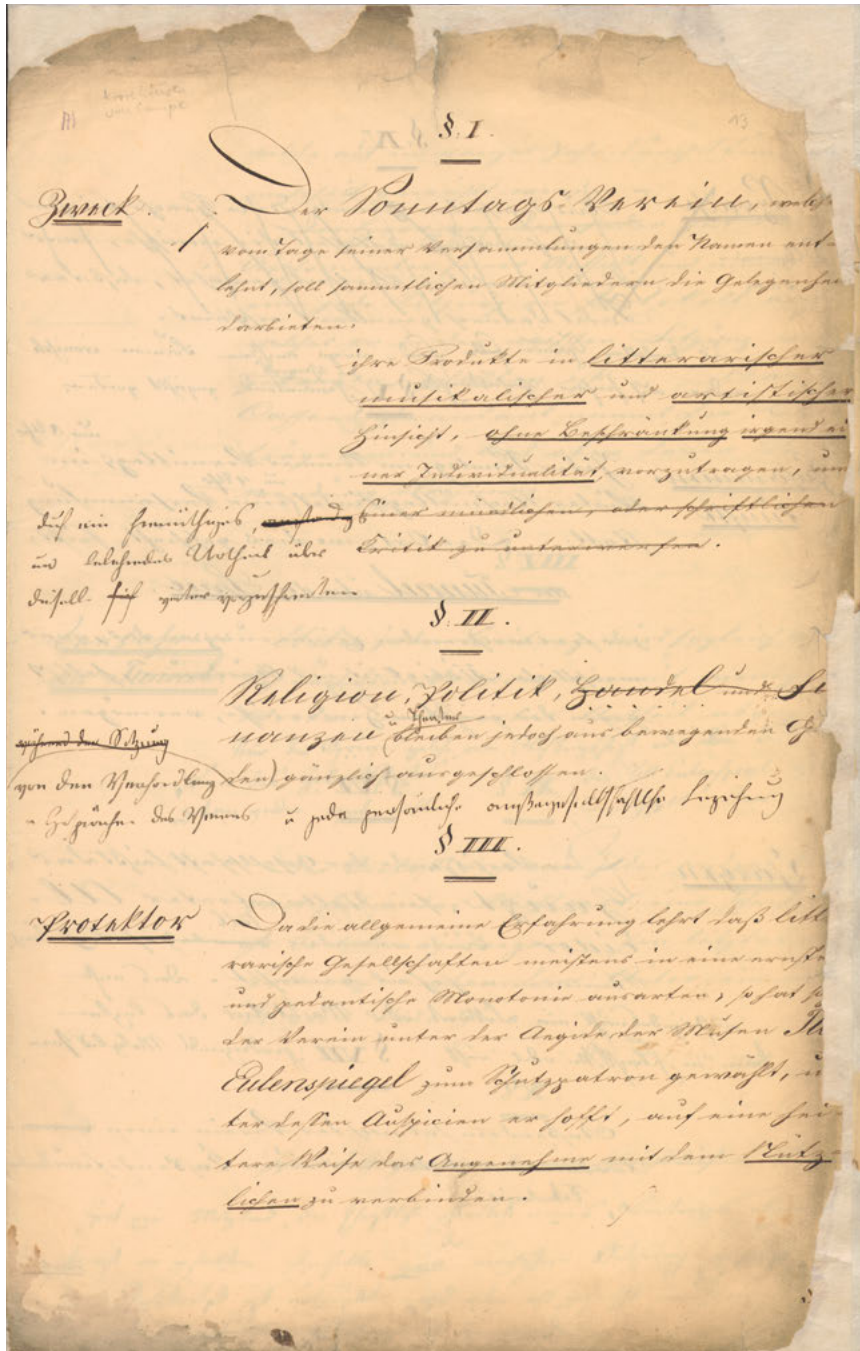 13
§. I.
Zweck.
Der Sonntags-Verein, welch
vom Tage seiner Versammlungen den Namen ent-
lehnt, soll sämmtlichen Mitgliedern die Gelegenhei
darbieten.
ihre Produkte in litterarischer
musikalischer und artistischer
Hinsicht, ohne Beschränkung irgend ei
ner Individualität, vorzutragen, um
einer mündlichen, oder schriftlichen
Kritik zu unterwerfen.
durch ein freimüthiges,
und belehrendes Urtheil über
dieselb- sich weiter
§. II.
Religion, Politik, Handel und Fi
nanzen u Theater bleiben jedoch aus bewegenden G
den) gänzlich ausgeschlossen.
während der Sitzung
von den Verhandlung
Gespräche des Vereins u jede persönliche außergesellschaftliche Beziehung
§ III.
Protektor
Da die allgemeine Erfahrung lehrt daß litt
rarische Gesellschaften meistens in eine ernste
und pedantische Monotonie ausarten, so hat s
der Verein unter der Aegide der Musen
Eulenspiegel zum Schutzpatron gewählt, u
ter dessen Auspicien er hofft, auf eine hei-
tere Weise das Angenehme mit dem Nütz-
lichen zu verbinden.